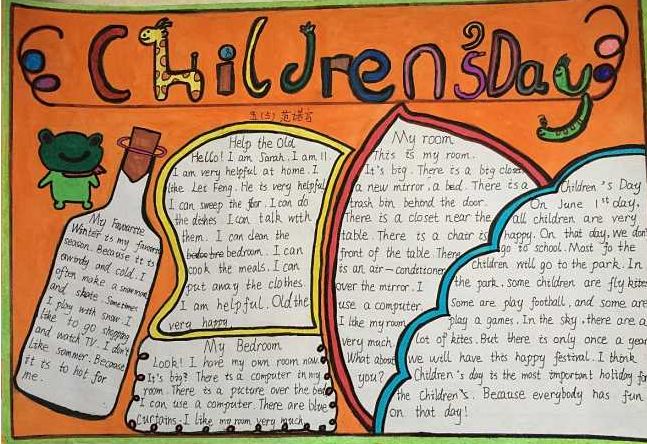 Children's Day
Help the Old
Hello! I am Sarah. I am 11.
I am very helpful at home. I
like Lei Feng. He is very helpful
I can sweep the floor. I can do
the dishes I can talk with
them. I can clean the
bedroom. I can
cook the meals. I can
put away the clothes.
I am helpful. Old the
very happy
My room
This is my room.
It's big. There is a big closet
a new mirror, a bed. There is a
trash bin behind the door.
There is a closet near the
table. There is a chair is
front of the table There
is an air-conditioner
over the mirror. I
use a computer
I like my room
very much.
What about
you?
Children's Day
On June 1st day,
all children are very
happy. On that day, We don't
go to school. Most fo the
Children will go to the park. In
the park. some children are fly kites
Some are play football, and some are
play a games. In the sky, there are a
lot of kites. But there is only once a year
we will have this happy festival. I think
Children's day is the most important holiday for
the Children's. Because everybody has fun
on that day!
My Favourite
Winter is my favorite
season. Because it is
windy and cold. I
often make a snowman
and skate Sometimes
I play with snow I
like to go shopping
and watch TV. I don't
like summer. Because
it is to hot for
me.
My Bedroom
Look! I have my own room now.
It's big? There is a computer in my
room There is a picture over the bed
I can use a computer. There are blue
curtains. I like my room very much.